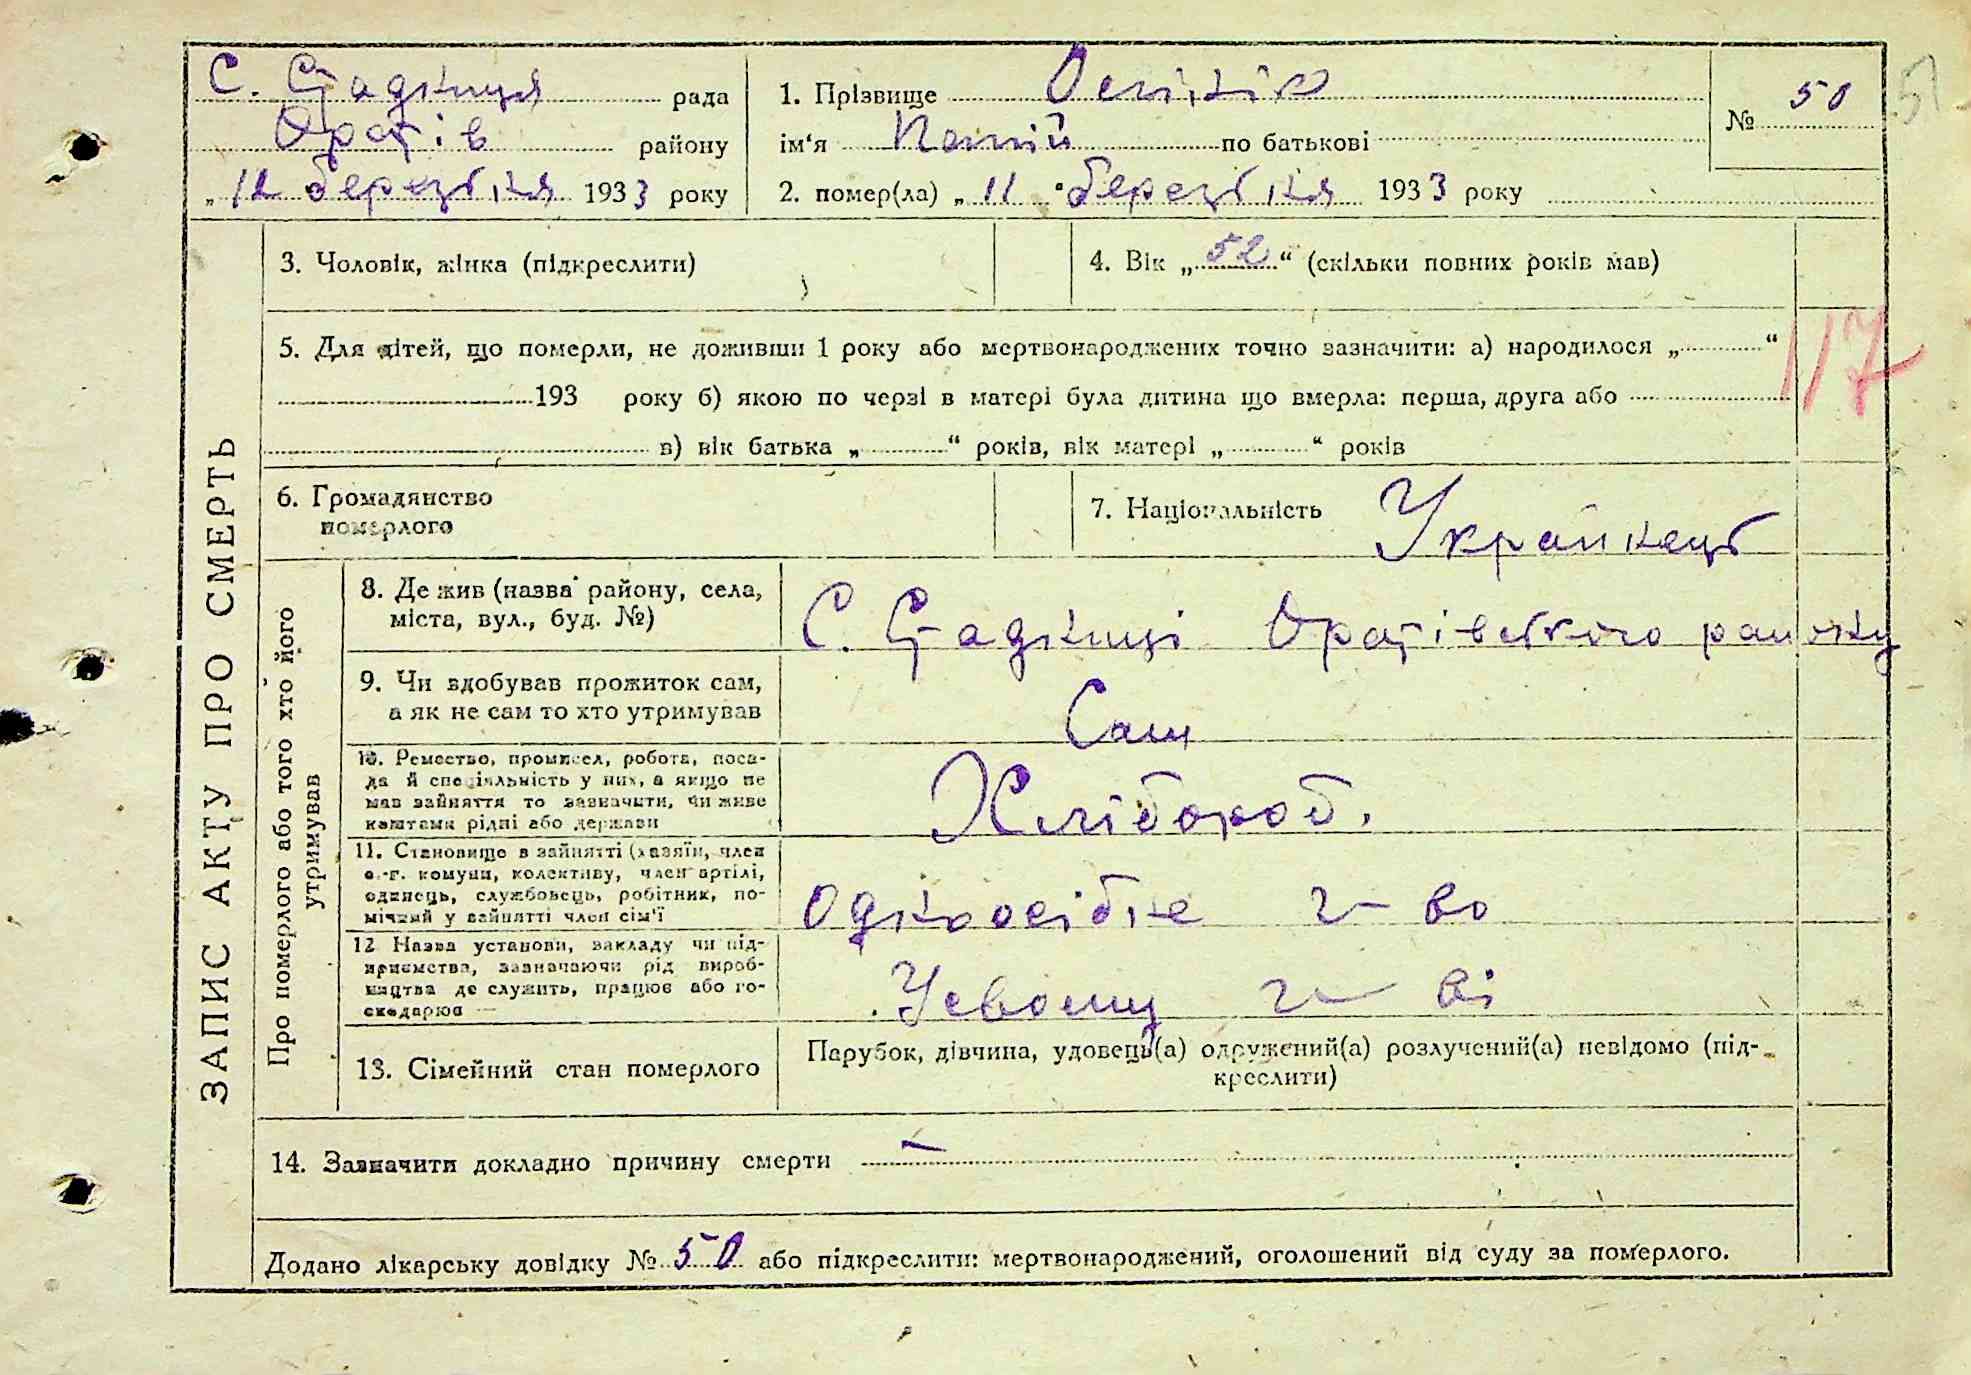 С. Стадниця рада
Оратів району
„12 березіля 1933 року
1. Прізвище
ім‘я по батькові
2. помер(ла) „11 березіля 1933 року
№ 50
51
ЗАПИС АКТУ ПРО СМЕРТЬ
3. Чоловік, жінка (підкреслити)
4. Вік „52“ (скільки повних років мав)
5. Для дітей, що померли, не доживши 1 року або мертвонароджених точно зазначити: а) народилося „ “
193 року б) якою по черзі в матері була дитина що вмерла: перша, друга або
в) вік батька „ “ років, вік матері „ “ років
117
6. Громадянство
померлого
7. Національність Украйнець
Про померлого або того хто його
утримував
8. Де жив (назва району, села,
міста, вул., буд. №)
С. Стадниці Оратівського району
9. Чи здобував прожиток сам,
а як не сам то хто утримував
Сам
10. Ремество, промисел, робота, поса-
да й спеціяльність у них, а якщо не
мав зайняття то зазначити, чи живе
коштами рідні або держави
Хлібороб.
11. Становище в зайнятті (хазяїн, член
с.-г. комуни, колективу, член артілі,
одинець, службовець, робітник, по-
мічний у зайнятті член сім'ї
Одноосібне г-во
12 Назва установи, закладу чи під-
приємства, зазначаючи рід вироб-
ництва де служить, працює або го-
сподарює —
Усвому г-ві
13. Сімейний стан померлого
Парубок, дівчина, удовець(а) одружений(а) розлучений(а) невідомо (під-
креслити)
14. Зазначити докладно причину смерти —
Додано лікарську довідку № 50 або підкреслити: мертвонароджений, оголошений від суду за померлого.